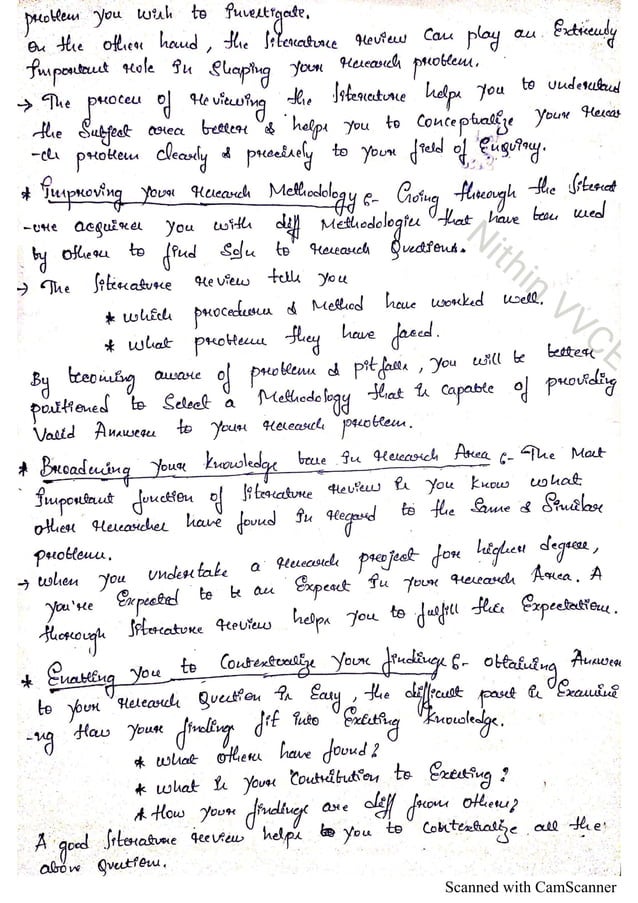 problem you wish to Investigate.
On the other hand, the literature review can play an Extremely
Important role in shaping your research problem.
→ The process of reviewing the literature helps you to understand
the subject area better & helps you to conceptualize your resear
-ch problem clearly & precisely to your field of Enquiry.
* Improving your research Methodology :- Going through the literat
-ure acquires you with diff Methodologies that have been used
by others to find Soln to research Questions.
→ The literature review tells you
* which procedures & Method have worked well.
* what problems they have faced.
By becoming aware of problems & pitfalls, you will be better
positioned to Select a Methodology that is capable of providing
Valid Answers to your research problem.
* Broadening your knowledge base in research Area :- The Most
Important function of literature review is you know what
other researcher have found in regard to the same & Similar
problems.
→ when you undertake a research project for higher degree,
you're Expected to be an Expert in your research Area. A
thorough literature review helps you to fulfill this Expectations.
* Enabling you to Contextualize your findings :- Obtaining Answers
to your research Question is Easy, the difficult part is Examini
-ng How your findings fit into Existing knowledge.
* what others have found?
* what is your contribution to Existing?
* How your findings are diff from others?
A good literature review helps to you to contextualize all the
above Questions.
Nithin VVCE
Scanned with CamScanner